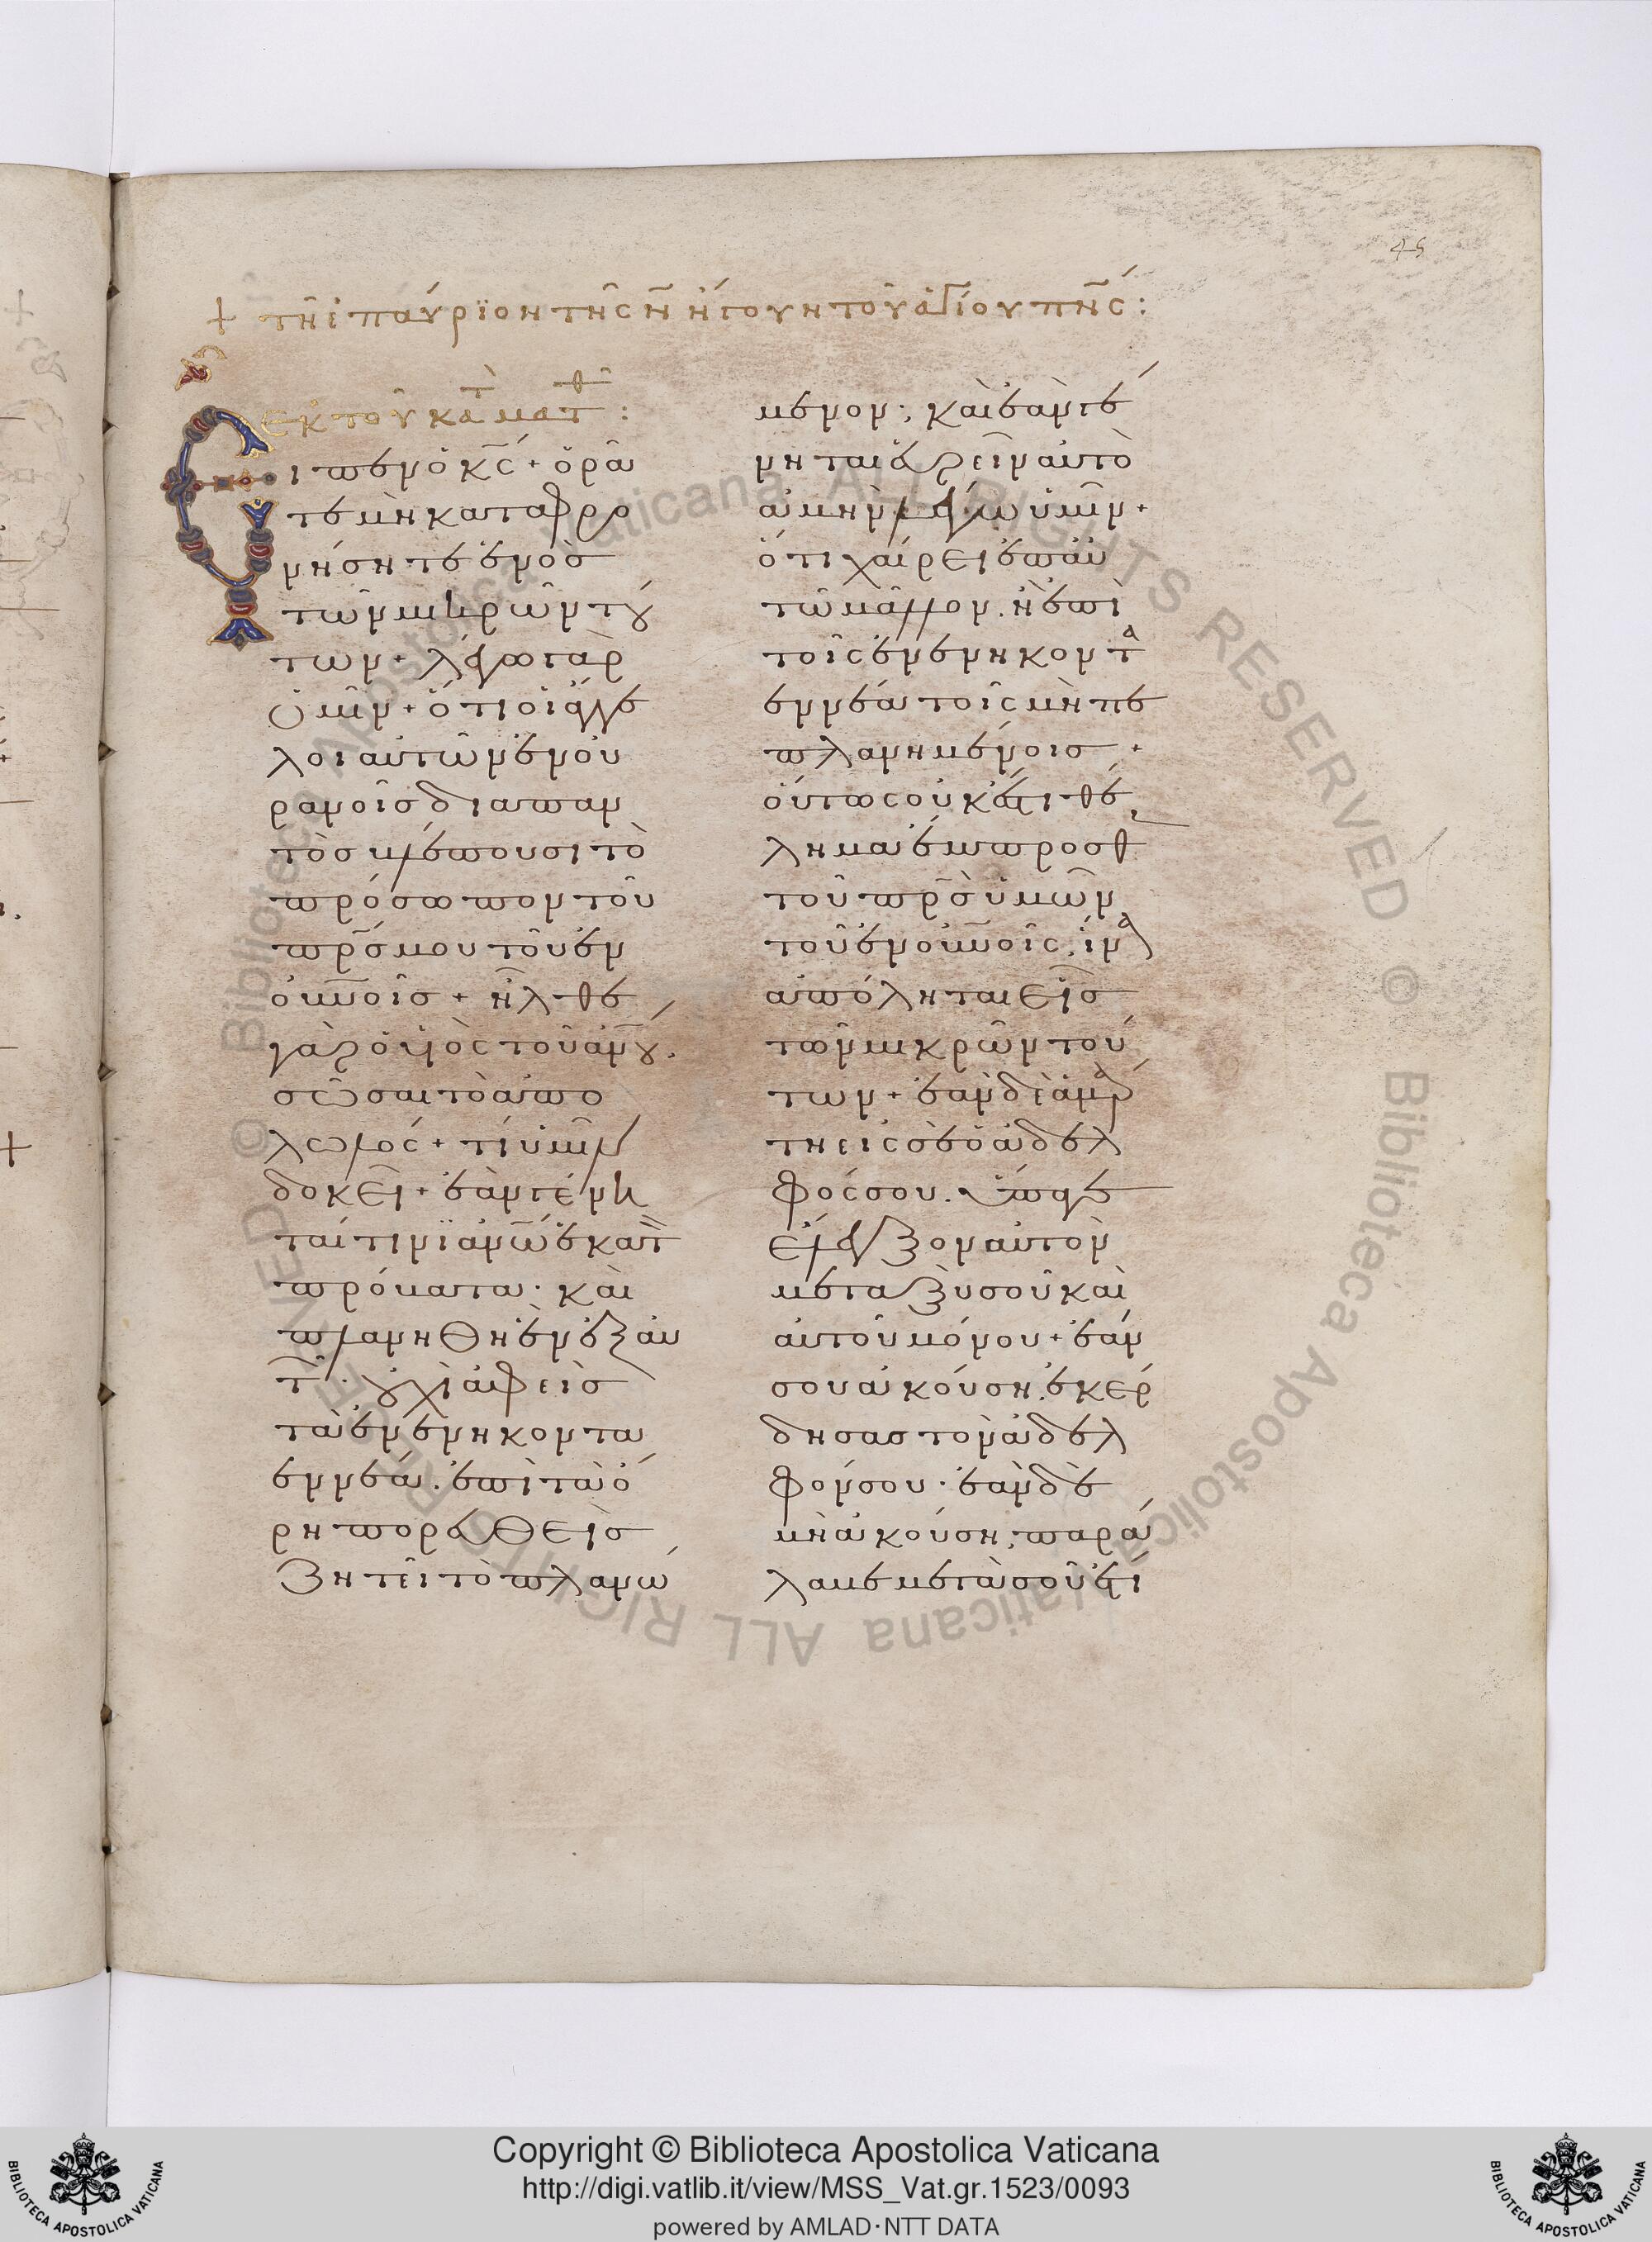 45
+ τῆ ἐπαύριον τῆς ν̅ ἤγουν τοῦ ἁγίου πν̅ς́ :
ἐκ τοῦ κατὰ ματθ :
Εἶπεν ὁ κ̅ς̅ + ὁρᾶ
τε μὴ καταφρο
νήσητε ἑνὸς
τῶν μικρῶν τού
των + λέγω γὰρ
ὑμῖν + ὅτι οἱ ἄγγε
λοι αὐτῶν ἐν οὐ
ρανοῖς διαπαν
τὸς βλέπουσι τὸ
πρόσωπον τοῦ
π̅ρ̅ς μου τοῦ ἐν
οὐνοῖς + ἦλθε
γὰρ ὁ υἱὸς τοῦ ἀν̅ου.
σῶσαι τὸ ἀπο
λωλός + τί ὑμῖν
δοκεῖ + ἐὰν γένη
ταί τινι ἀνω̅ ἑκατ
πρόβατα · καὶ
πλανηθῆ ἓν ἐξ αὐ
τ̅ · οὐχὶ ἀφεὶς
τὰ ἐνενήκοντα
ἐννέα · ἐπὶ τὰ ὄ
ρη πορευθεὶς
ζητεῖ τὸ πλανώ
μενον ; καὶ ἐὰν γέ
νηται εὑρεῖν αὐτὸ
ἀμὴν λέγω ὑμῖν +
ὅτι χαίρει ἐπ' αὐ
τῶ μᾶλλον. ἢ ἐπὶ
τοῖς ἐνενήκοντα
ἐννέα τοῖς μὴ πε
πλανημένοις +
οὕτως οὐκ ἔστι θέ
λημα ἔμπροσθ
τοῦ π̅ρ̅ς ὑμῶν
τοῦ ἐν οὐνοῖς. ἵνα
ἀπόληται εἷς
τῶν μικρῶν τού
των + ἐὰν δὲ ἁμάρ
τη εἰς σὲ ὁ ἀδελ
φός σου. ὕπαγε
ἔλεγξον αὐτὸν
μεταξὺ σοῦ καὶ
αὐτοῦ μόνου + ἐάν
σου ἀκούση. ἐκέρ
δησας τὸν ἀδελ
φόν σου · ἐὰν δὲ
μὴ ἀκούση, παρά
λαβε μετὰ σοῦ ἔτι
Copyright © Biblioteca Apostolica Vaticana
http://digi.vatlib.it/view/MSS_Vat.gr.1523/0093
powered by AMLAD·NTT DATA